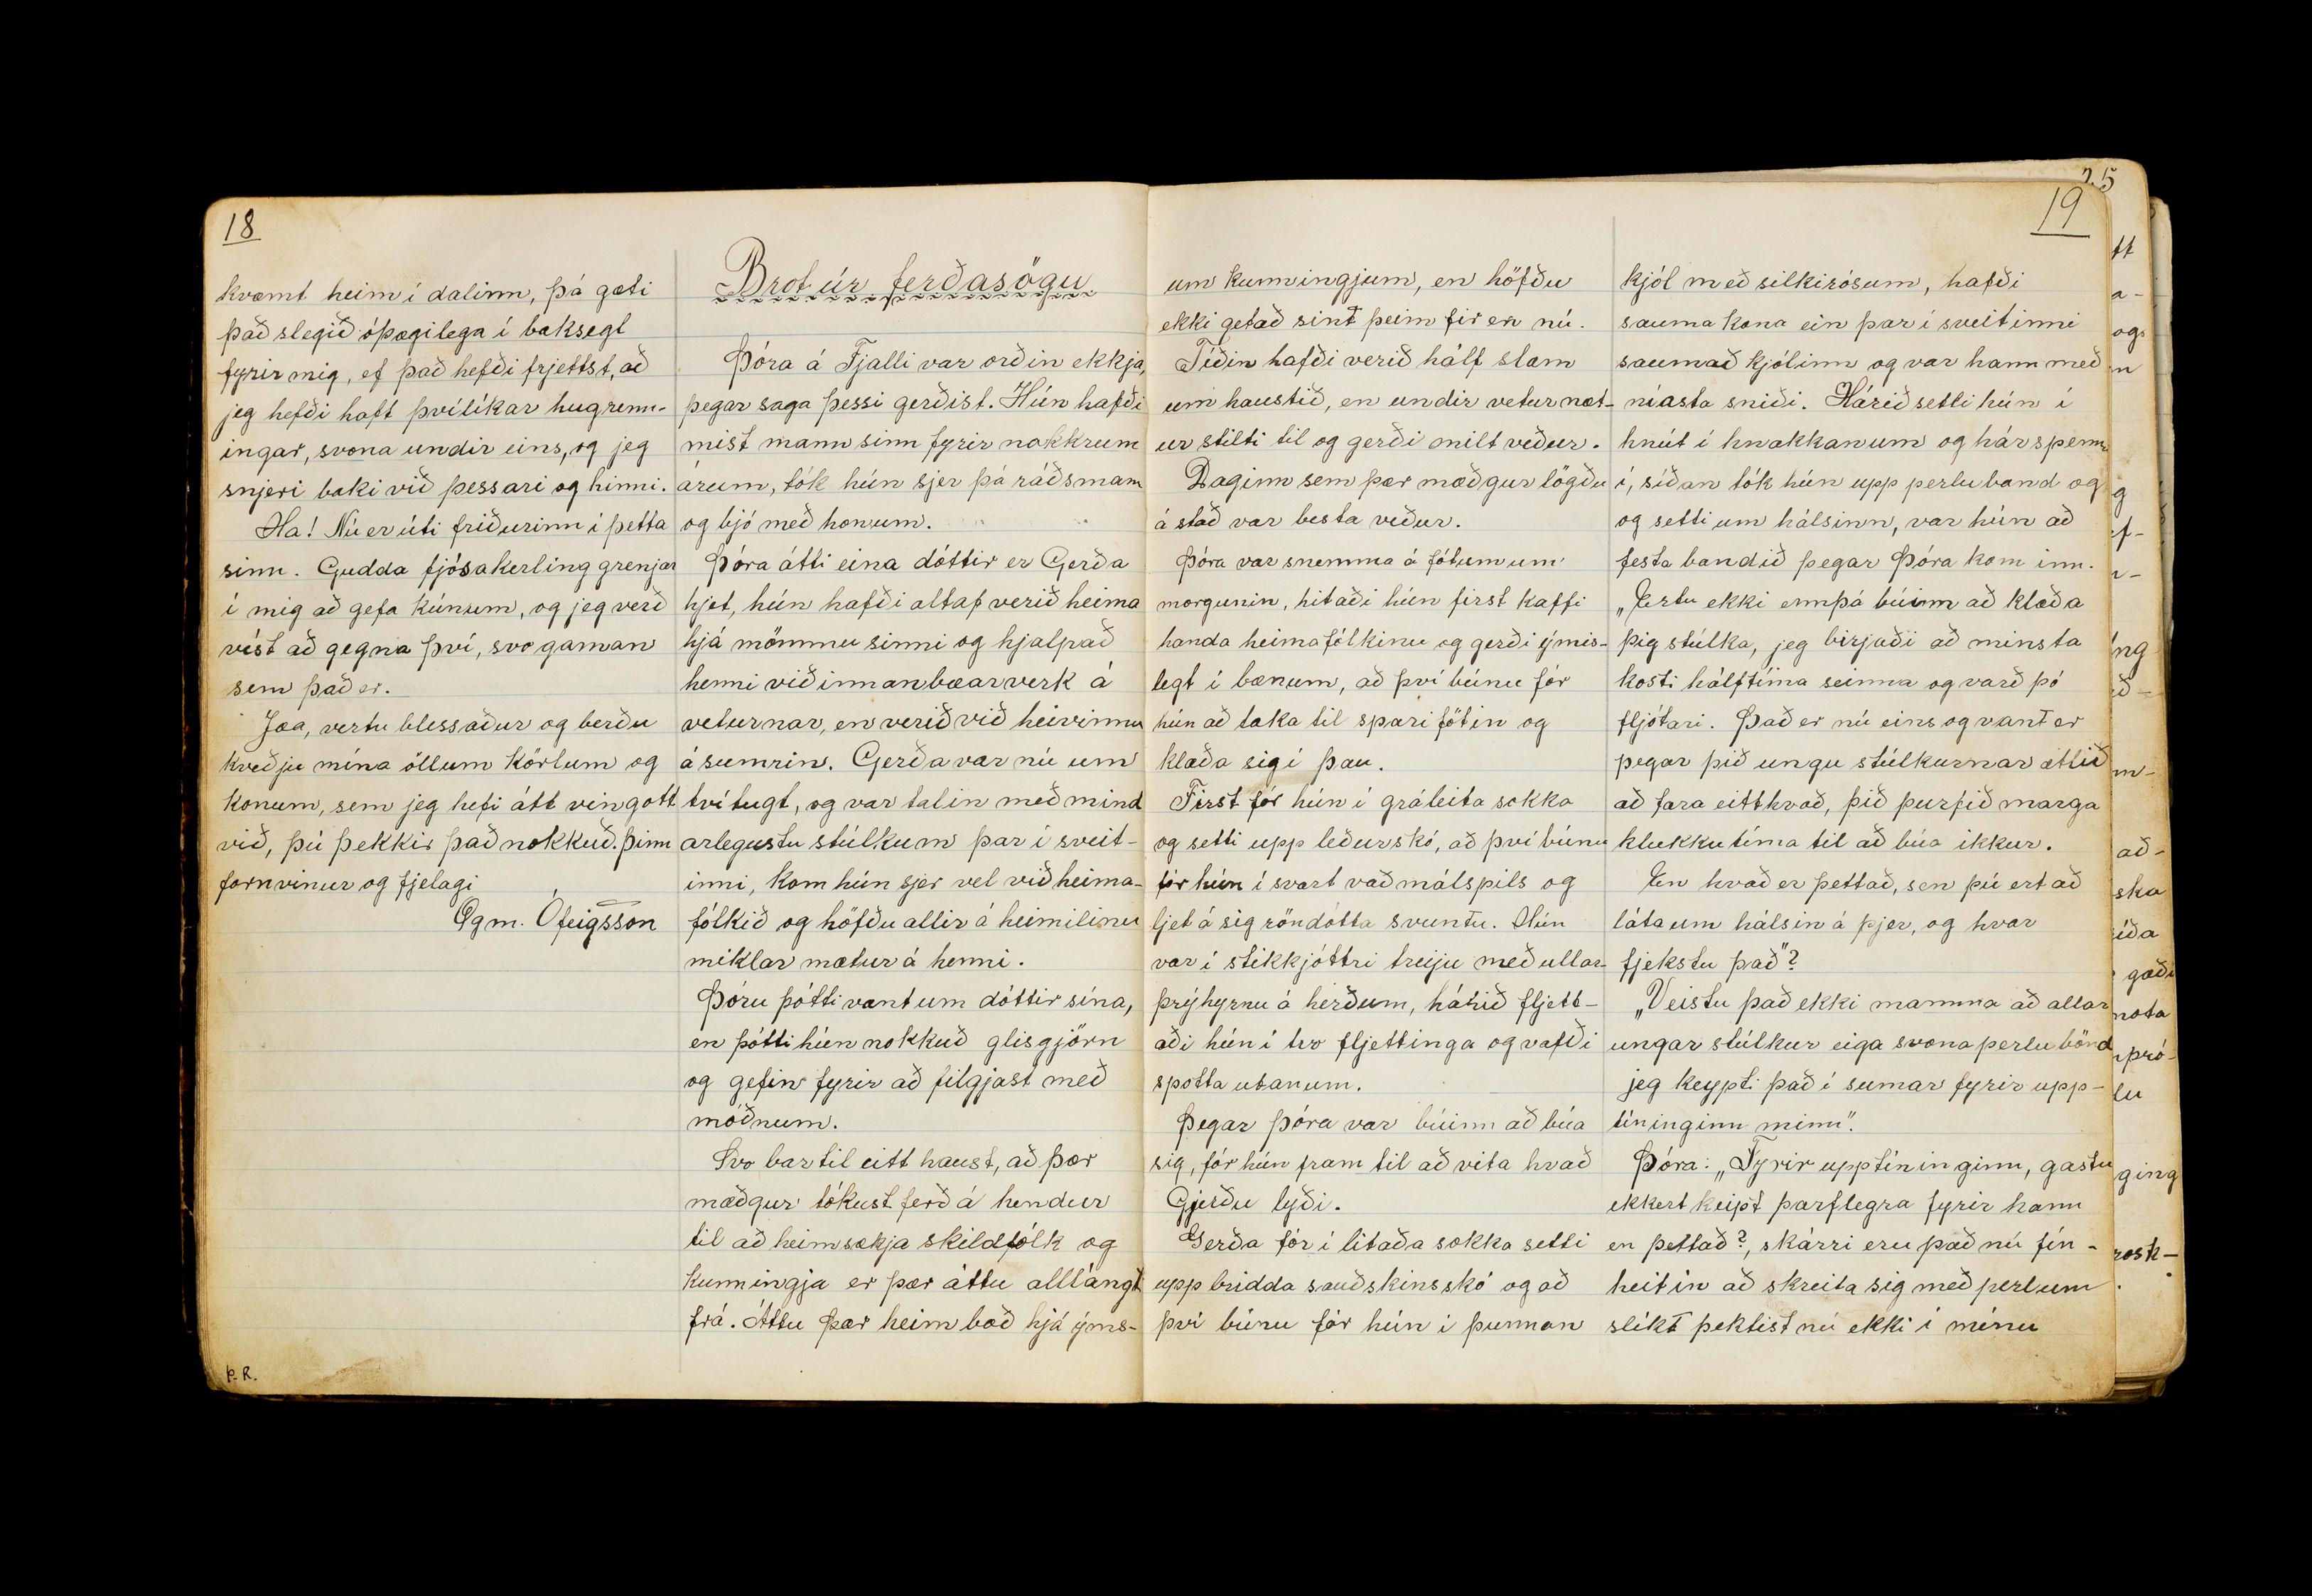 18
kvæmt heim í dalinn, þá gæti
það slegið óþægilega í baksegl
fyrir mig, ef það hefði frjettst, að
jeg hefði haft þvílíkar hugrenn-
ingar, svona undir eins, og jeg
snjeri baki við þessari og hinni.
Ha! Nú er úti friðurinn í þetta
sinn. Gudda fjósakerling grenjar
í mig að gefa kúnum, og jeg verð
víst að gegna því, svo gaman
sem það er.
Jæa, vertu blessaður og berðu
kveðju mína öllum körlum og
konum, sem jeg hefi átt vingott
við, þú þekkir það nokkuð. þinn
fornvinur og fjelagi
Ögm. Ófeigsson
Þ. R.
Brot úr ferðasögu
Þóra á Fjalli var orðin ekkja,
þegar saga þessi gerðist. Hún hafði
mist mann sinn fyrir nokkrum
árum, tók hún sjer þá ráðsmann
og bjó með honum.
Þóra átti eina dóttir er Gerða
hjet, hún hafði altaf verið heima
hjá mömmu sinni og hjalpað
henni við innanbæarverk á
veturnar, en verið við heivinnu
á sumrin. Gerða var nú um
tvítugt, og var talin með mind
arlegustu stúlkum þar í sveit-
inni, kom hún sjer vel við heima-
fólkið og höfðu allir á heimilinu
miklar mætur á henni.
Þóru þótti vænt um dóttir sína,
en þótti hún nokkuð glisgjörn
og gefin fyrir að filgjast með
móðnum.
Svo bar til eitt haust, að þær
mæðgur tókust ferð á hendur
til að heimsækja skildfólk og
kunningja er þær áttu alllángt
frá. Áttu þær heimboð hjá ýms-
19
um kunningjum, en höfðu
ekki getað sint þeim fir en nú.
Tíðin hafði verið hálf slæm
um haustið, en undir veturnæt-
ur stilti til og gerði milt veður.
Daginn sem þær mæðgur lögðu
á stað var besta veður.
Þóra var snemma á fótum um
morgunin, hitaði hún first kaffi
handa heimafólkinu og gerði ýmis-
legt í bænum, að því búnu fór
hún að taka til sparifötin og
klæða sig í þau.
First fór hún í gráleita sokka
og setti upp leðurskó, að því búnu
fór hún í svart vaðmálspils og
ljet á sig röndótta svuntu. Hún
var í stikkjóttri treyju með ullar-
þrýhyrnu á herðum, hárið fljett-
aði hún í tvo fljettinga og vafði
spotta utanum.
Þegar Þóra var búinn að búa
sig, fór hún fram til að vita hvað
Gjerðu lýði.
Gerða fór í litaða sokka setti
upp bridda sauðskinsskó og að
því búnu fór hún í þunnan
kjól með silkirósum, hafði
sauma kona ein þar í sveitinni
saumað kjólinn og var hann með
níasta sniði. Hárið setti hún í
hnút í hnakkanum og hárspennu
í, síðan tók hún upp perluband og
og setti um hálsinn, var hún að
festa bandið þegar Þóra kom inn.
„Ertu ekki ennþá búinn að klæða
þig stúlka, jeg birjaði að minsta
kosti hálftíma seinna og varð þó
fljótari. Það er nú eins og vant er
þegar þið ungu stúlkurnar ætlið
að fara eitthvað, þið þurfið marga
klukkutíma til að búa ikkur.
En hvað er þettað, sen þú ert að
láta um hálsin á þjer, og hvar
fjekstu það"?
„Veistu það ekki mamma að allar
ungar stúlkur eiga svona perlubönd
jeg keypti það í sumar fyrir upp-
tíninginn minn".
Þóra: „Fyrir upptíninginn, gastu
ekkert keipt þarflegra fyrir hann
en þettað?, skárri eru það nú fín-
heitin að skreita sig með perlum
slíkt þektist nú ekki í mínu
25